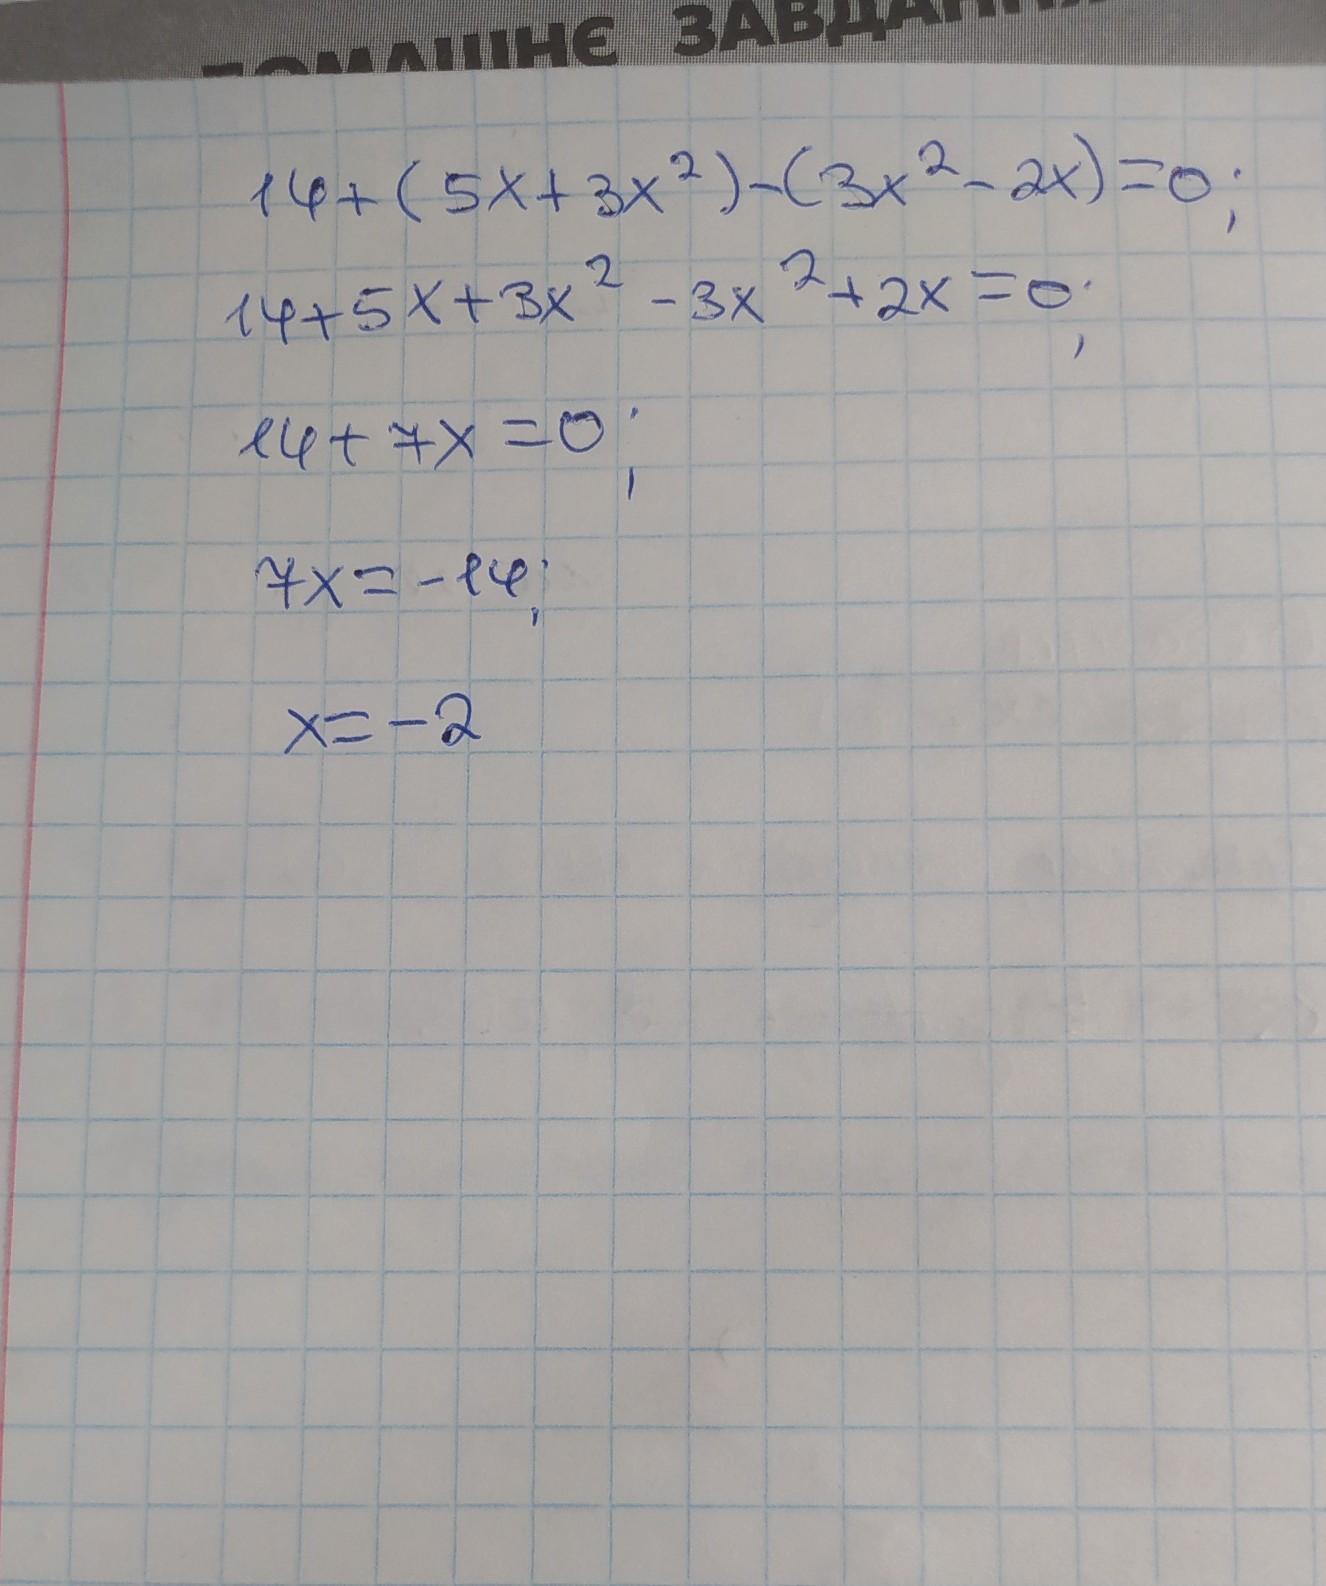 ДОМАШНЄ ЗАВДАННЯ
14+(5x+3x²)-(3x²-2x)=0;
14+5x+3x²-3x²+2x=0;
14+7x=0;
7x=-14;
x=-2